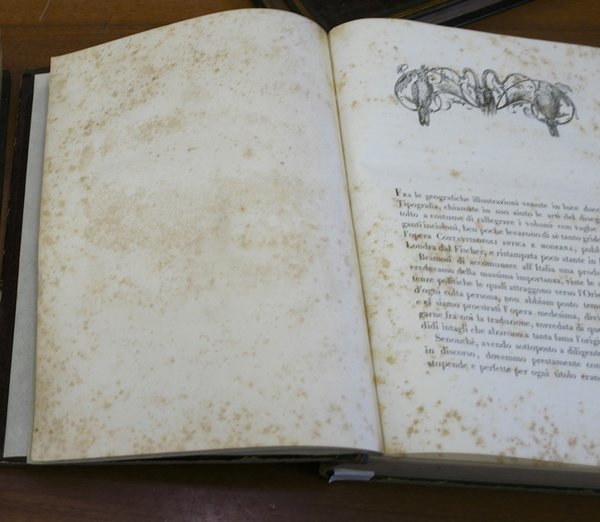 Fra le geografiche illustrazioni venute in luce
Tipografia, chiamate in suo aiuto le arti del
tolto a costume di rallegrare i volumi con vaghe
ganti incisioni, ben poche levarono di sè tanto
l'opera Costantinopoli antica e moderna,
Londra dal Fischer, e ristampata poco stante in
Bramosi di accomunare all'Italia una
credevamo della massima importanza, viste le
tenze politiche le quali attraggono verso
d'ogni colta persona, non abbiam posto
e ci siamo procurati l'opera medesima,
garne fra noi la traduzione, corredata di
didi intagli che alzarono a tanta fama
Senonchè, avendo sottoposto a
in discorso, dovemmo prestamente
stupende e perfette per ogni titolo